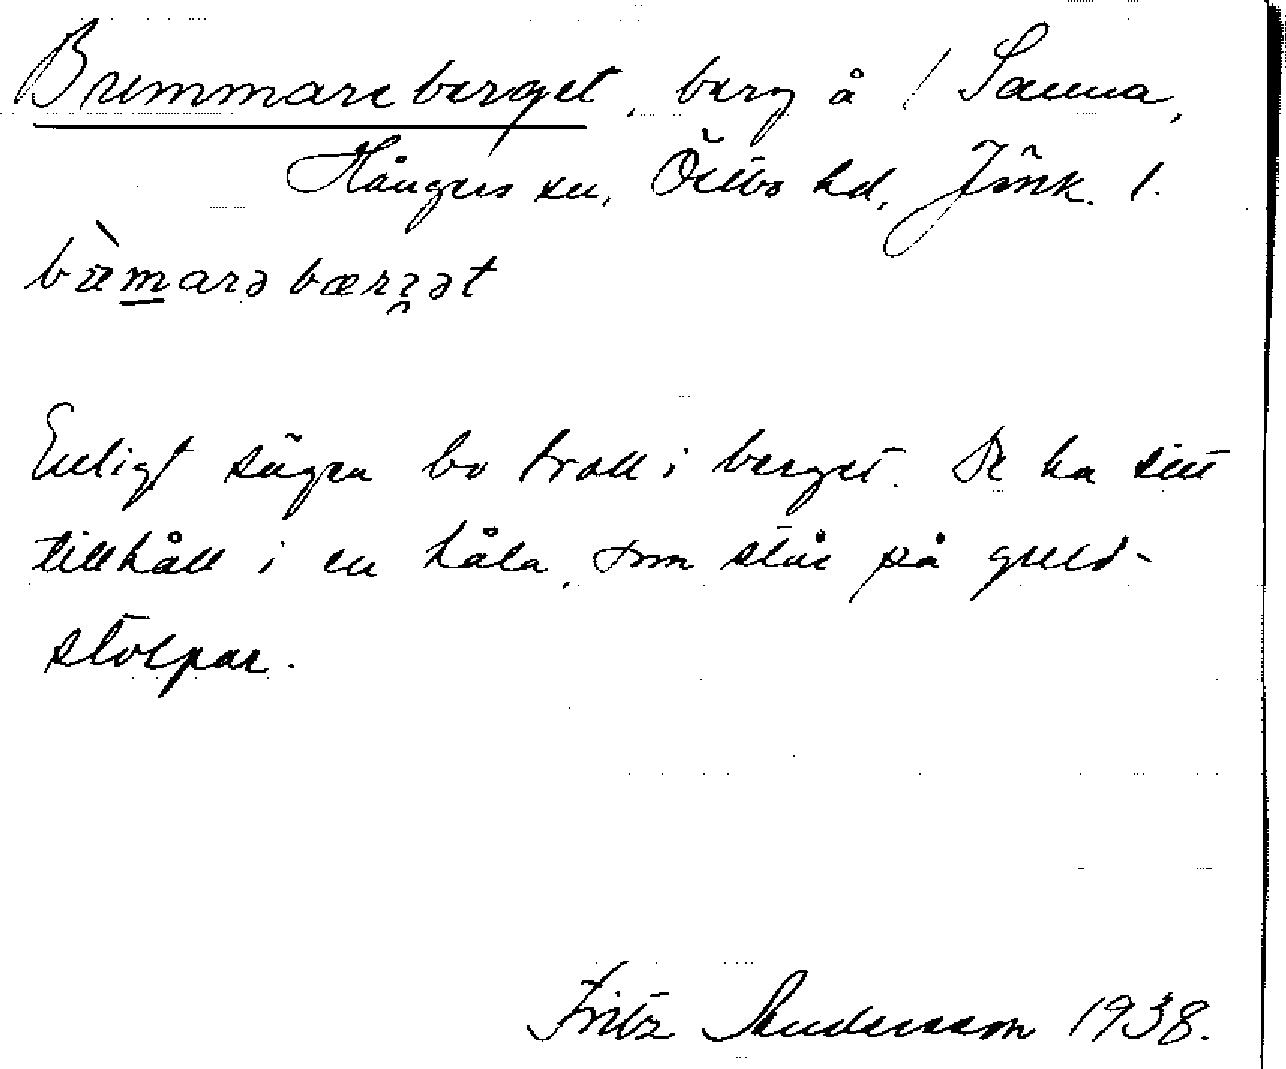 Bremmareberget, berg å 1 Sanna,
Hångers sn, Östbo hd, Jönk. l.
Enligt sägen bo troll i berget. De ha sitt
tillhåll i en håla, som står på guld-
stolpar.
Fritz Andersson 1938.